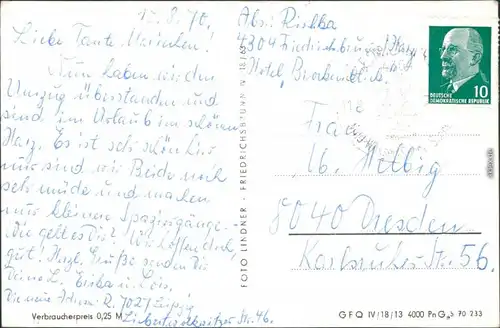 17.8.70.
Liebe Tante Mariechen!
Nun haben wir den
Umzug überstanden und
sind im Urlaub im schönen
Harz. Es ist sehr schön hier
nur sind wir Beide noch
sehr müde und machen
nur kleinere Spaziergänge.
Wie geht es Dir? Wir hoffen doch,
gut! Herzl. Grüße senden Dir
Deine L. Erika u. Lois.
Die neue Adr.: R. 7027 Leipzig
Liebertwolkwitzer Str. 46.
Verbraucherpreis 0,25 M
FOTO LINDNER - FRIEDRICHSBRUNN N 18/63
Abs: Rischka
4304 Friedrichsbrunn/Harz
Hotel Brockenblick
DEUTSCHE
DEMOKRATISCHE REPUBLIK
10
Frau
M. Helbig
8040 Dresden
Karlsruher Str. 56.
G F Q IV/18/13 4000 Pn G 5 70 233